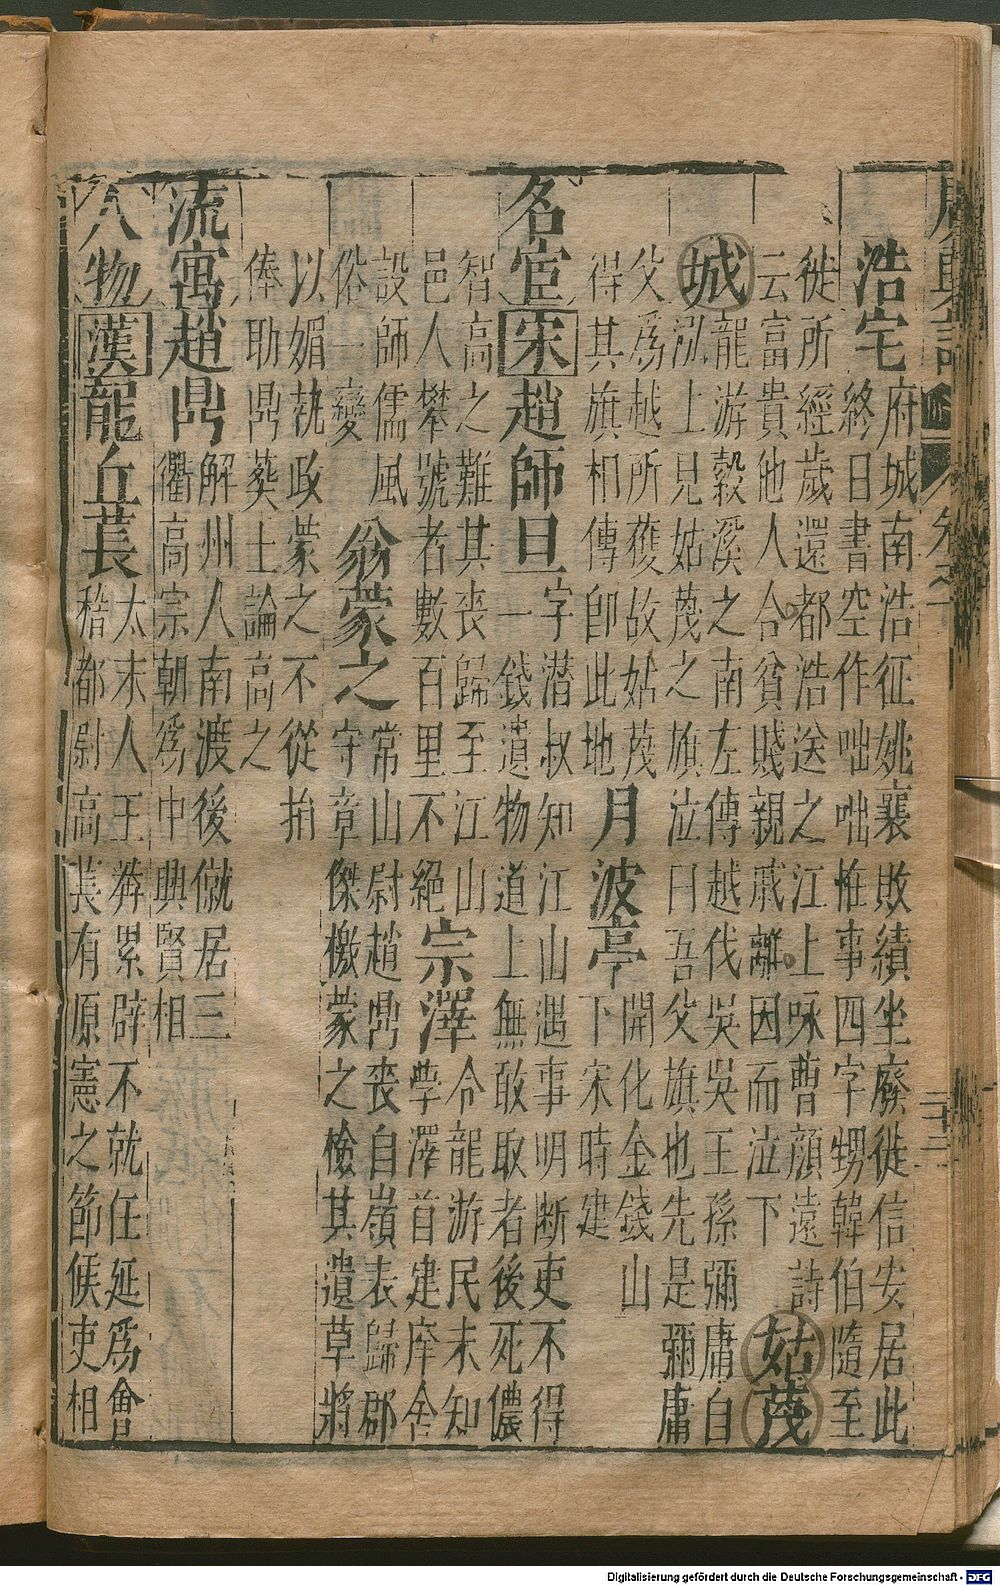 廣輿記 卷之 二十二
浩宅 府城南浩征姚襄敗績坐廢徙信安居此
終日書空作咄咄恠事四字甥韓伯隨至
徙所經歲還都浩送之江上咏曹顏遠詩
云富貴他人合貧賤親戚離因而泣下 姑蔑
城 龍游榖溪之南左傳越伐吳吳王孫彌庸自
泓上見姑蔑之旗泣曰吾父旗也先是彌庸
父爲越所獲故姑蔑
得其旗相傳卽此地
月波亭 開化金錢山
下宋時建
名宦 宋 趙師旦 字潜叔知江山遇事明断吏不得
一錢遺物道上無敢取者後死儂
智高之難其丧歸至江山
邑人攀號者數百里不絕
宗澤 令龍游民未知
學澤首建庠舍
設師儒風
俗一變
翁蒙之 常山尉趙鼎丧自嶺表歸郡
守章傑檄蒙之檢其遺草將
以媚執政蒙之不從捐
俸助鼎葬士論高之
流寓 趙鼎 解州人南渡後僦居三
衢高宗朝爲中興賢相
人物 漢 龍丘萇 太末人王莾累辟不就任延爲會
稽都尉高萇有原憲之節候吏相
Digitalisierung gefördert durch die Deutsche Forschungsgemeinschaft - DFG